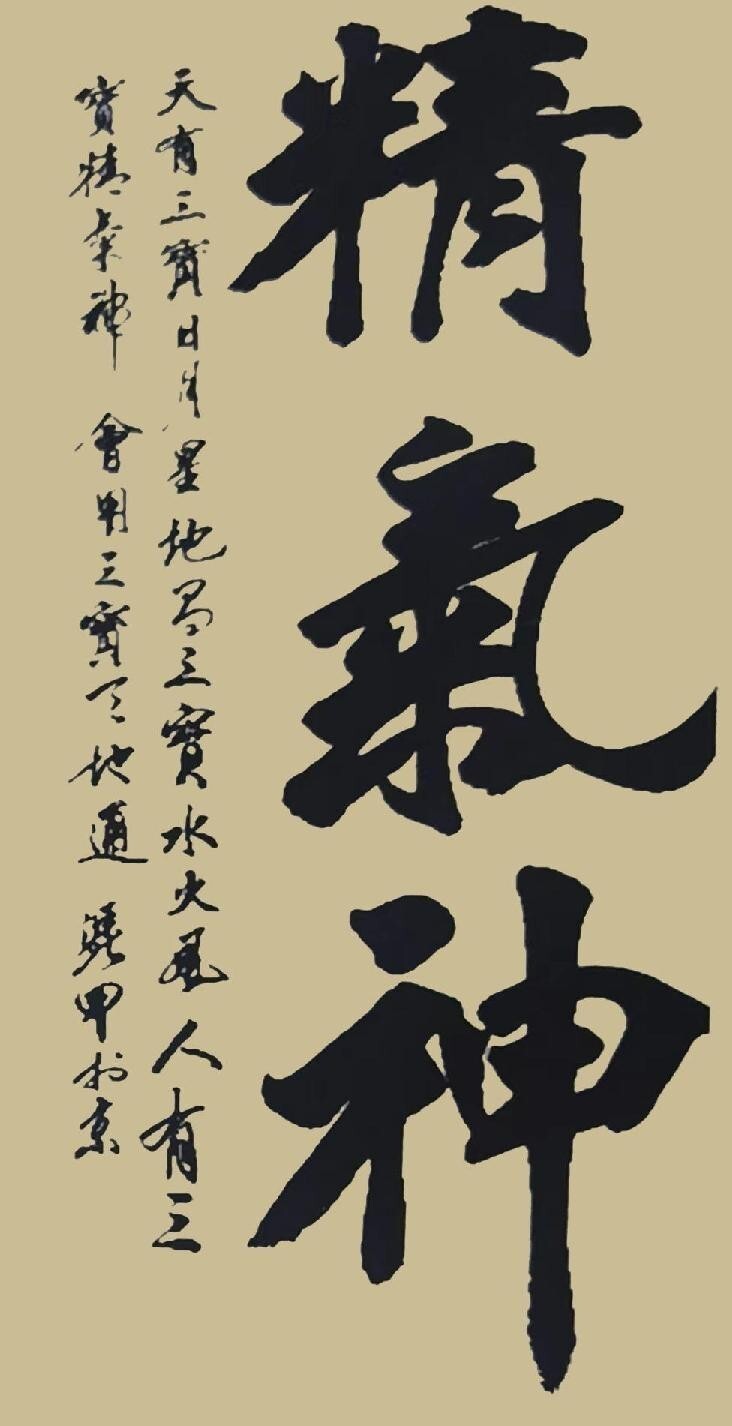 精氣神
天有三寶日月星地有三寶水火風人有三
寶精氣神 會用三寶天地通 甲於京